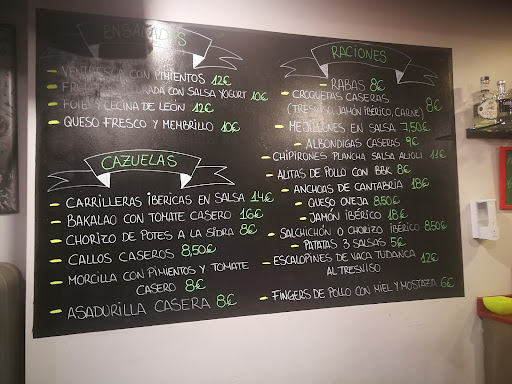 ENSALADAS
VENTRESCA CON PIMIENTOS 12€
CON SALSA YOGURT 10€
FOIE Y CECINA DE LEÓN 12€
QUESO FRESCO Y MEMBRILLO 10€
CAZUELAS
CARRILLERAS IBERICAS EN SALSA 14€
BAKALAO CON TOMATE CASERO 16€
CHORIZO DE POTES A LA SIDRA 8€
CALLOS CASEROS 8,50€
MORCILLA CON PIMIENTOS Y TOMATE
CASERO 8€
ASADURILLA CASERA 8€
RACIONES
RABAS 8€
CROQUETAS CASERAS
(TRESVISO, JAMÓN IBÉRICO, CARNE) 8€
MEJILLONES EN SALSA 7,50€
ALBÓNDIGAS CASERAS 9€
CHIPIRONES PLANCHA SALSA ALIOLI 11€
ALITAS DE POLLO CON BBK 8€
ANCHOAS DE CANTABRIA 18€
QUESO OVEJA 8,50€
JAMÓN IBÉRICO 18€
SALCHICHÓN O CHORIZO IBÉRICO 8,50€
PATATAS 3 SALSAS 5€
ESCALOPINES DE VACA TUDANCA 12€
AL TRESVISO
FINGERS DE POLLO CON MIEL Y MOSTAZA 6€